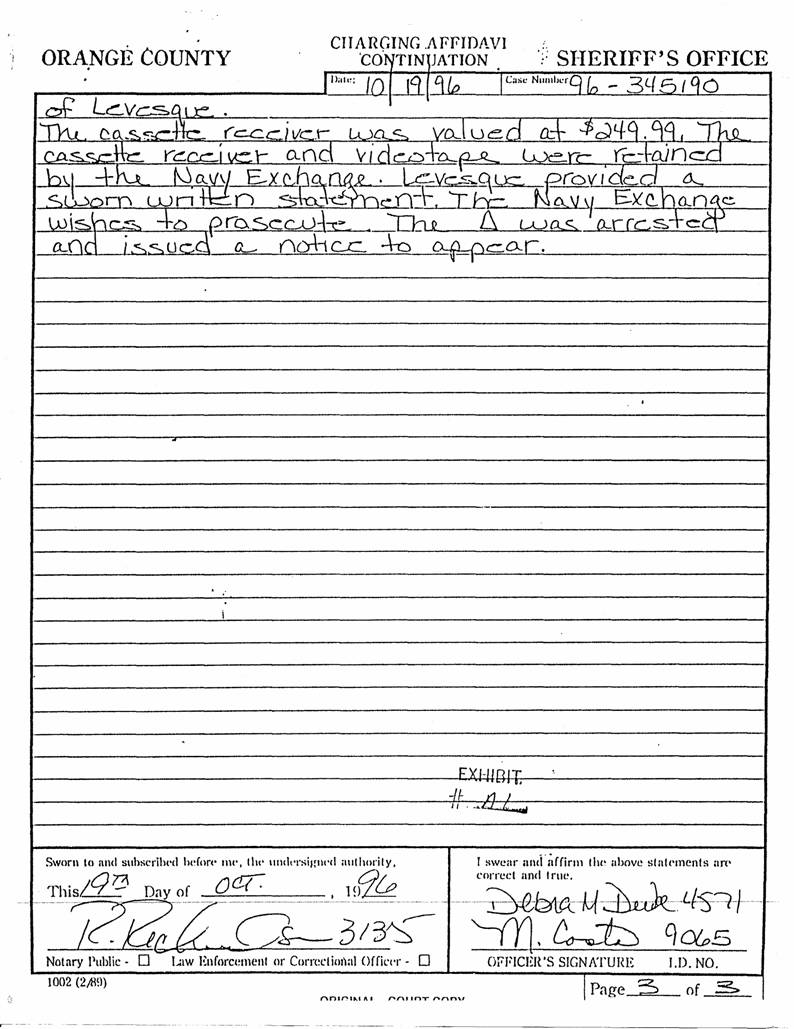 CHARGING AFFIDAVI
ORANGE COUNTY CONTINUATION SHERIFF'S OFFICE
Date: 10 19 96 Case Number 96-345190
of Levesque.
The cassette receiver was valued at $249.99. The
cassette receiver and videotape were retained
by the Navy Exchange. Levesque provided a
sworn written statement. The Navy Exchange
wishes to prosecute. The Δ was arrested
and issued a notice to appear.
EXHIBIT
# AL
Sworn to and subscribed before me, the undersigned authority,
This 19th Day of OCT. , 1996
3135
Notary Public - ☐ Law Enforcement or Correctional Officer - ☐
I swear and affirm the above statements are
correct and true.
Debra M. 4571
M. 9065
OFFICER'S SIGNATURE I.D. NO.
1002 (2/89)
Page 3 of 3
ORIGINAL COURT COPY